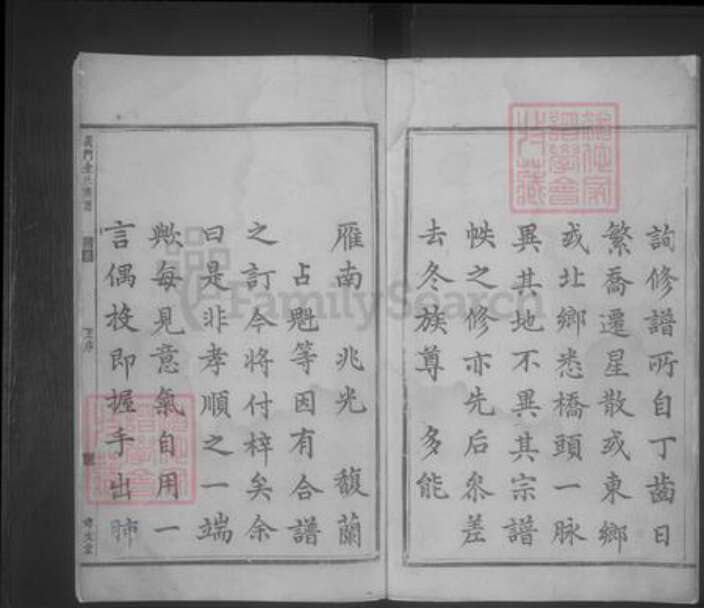 詢修譜所自丁齒日
繁喬遷星散或東鄉
或北鄉悉橋頭一脉
異其地不異其宗譜
帙之修亦先后參差
去冬族尊 多能
雁南 兆光 馥蘭
占魁等因有合譜
之訂今將付梓矣余
曰是非孝順之一端
歟每見意氣自用一
言偶投即握手出肺
FamilySearch